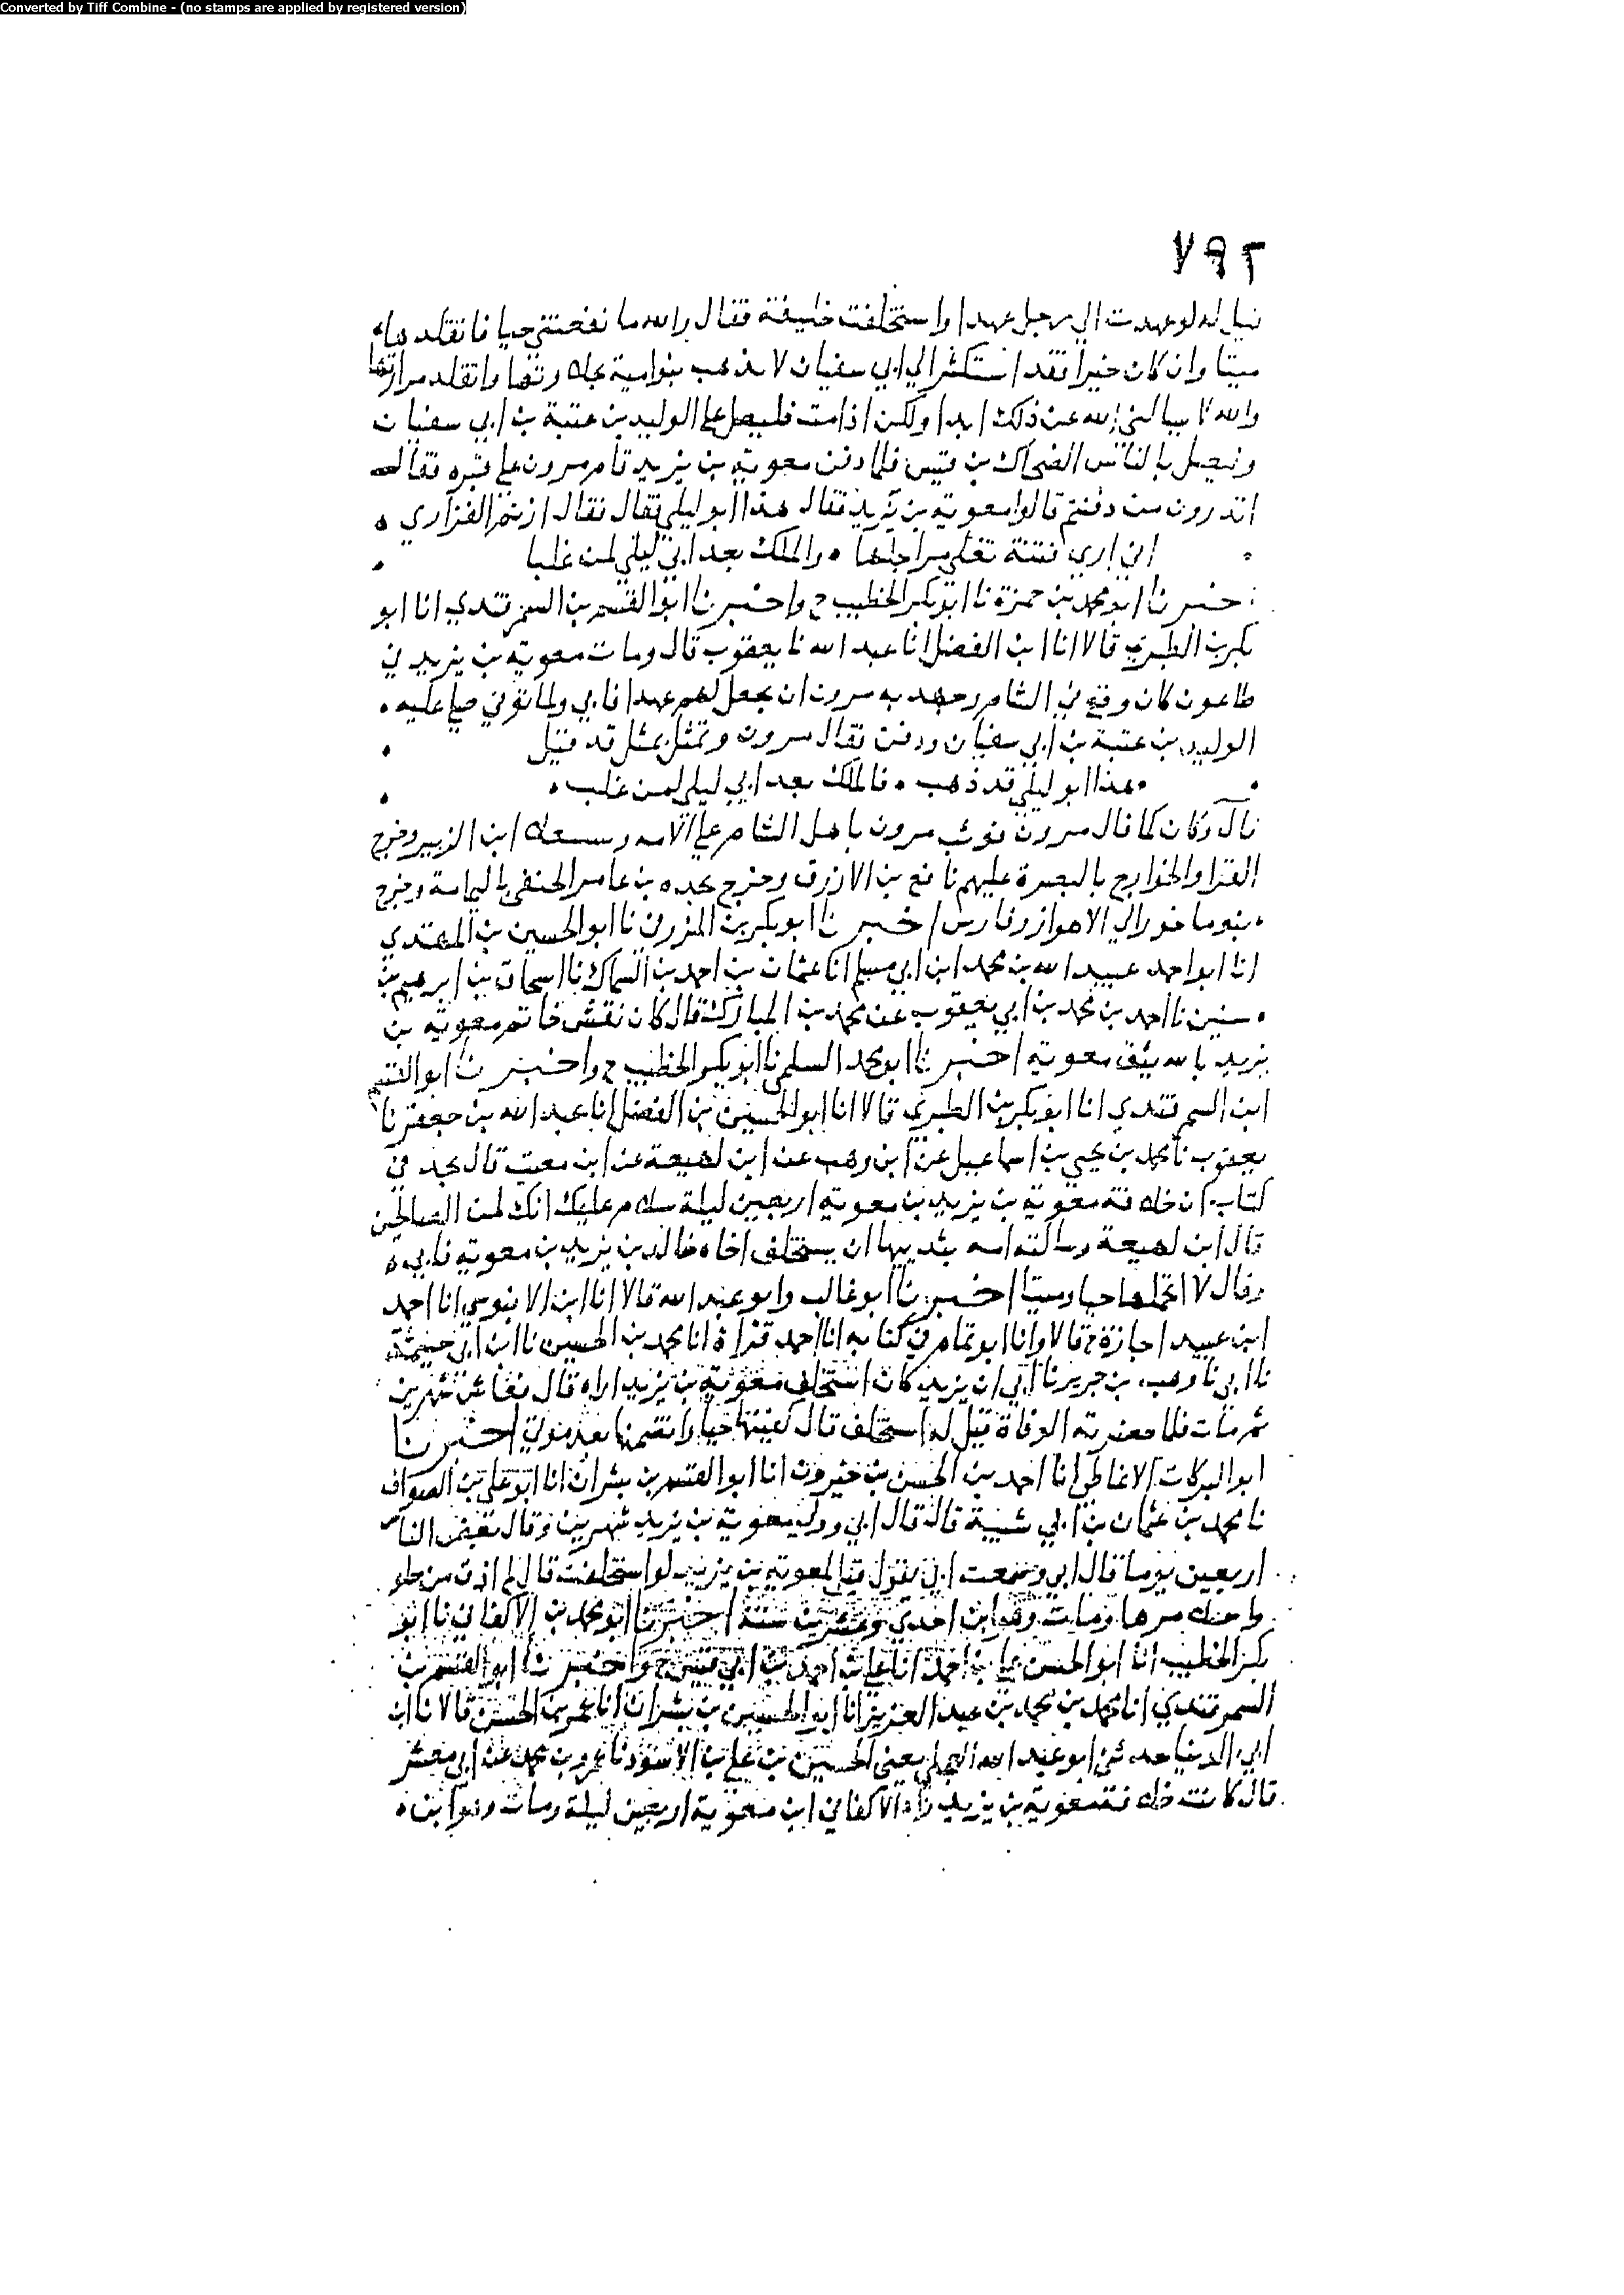 Converted by Tiff Combine - (no stamps are applied by registered version)
٧٩٢
قيل له لو عهدت الي رجل عهدا واستخلفت خليفة فقال والله ما نفعتني حيا فاتقلدها
ميتا وان كان خيرا فقد استكثر الي ابي سفيان لا يذهب بنوامية بحلاوتها واتقلد مرارتها
والله لا يسالني الله عن ذلك ابدا ولكن اذا مت فليصل علي الوليد بن عتبة بن ابي سفيان
وليصل بالناس الضحاك بن قيس فلما دفن معوية بن يزيد قام مرون علي قبره فقال
اتدرون من دفنتم قالوا معوية بن يزيد فقال هذا ابو ليلي فقال ازنم الفزاري
اني اري فتنة تغلي مراجلها والملك بعد ابي ليلي لمن غلبا
اخبرنا ابو محمد بن حمزة نا ابو بكر الخطيب ح واخبرنا ابو القسم بن السمرقندي انا ابو
بكر بن الطبري قالا انا ابن الفضل انا عبد الله نا يعقوب قال ومات معوية بن يزيد في
طاعون كان وقع في الشام وجهد به مرون ان يجعل لهم عهدا فابي ولما توفي صلي عليه
الوليد بن عتبة بن ابي سفيان ودفن فقال مرون وتمثل بمثل قد قيل
هذا ابو ليلي قد ذهب فالملك بعد ابي ليلي لمن غلب
قال وكان كما قال مرون فوثب مرون باهل الشام علي وسمع ابن الزبير وخرج
القرا والخوارج بالبصرة عليهم نافع بن الازرق وخرج نجده بن عامر الحنفي باليمامة وخرج
بنو ماحوز الي الاهواز وفارس اخبرنا ابو بكر بن المزرفي نا ابو الحسين بن المهتدي
انا ابو احمد عبيد الله بن محمد ابن ابي مسلم انا عثمان بن احمد بن السماك نا اسحاق بن ابرهيم بن
سنين نا احمد بن محمد بن ابي يعقوب عن محمد بن المبارك قال كان نقش خاتم معوية بن
يزيد بالله يثق معوية اخبرنا ابو محمد السلمي نا ابو بكر الخطيب ح واخبرنا ابو القسم
ابن السمرقندي انا ابو بكر بن الطبري قالا انا ابو الحسين بن الفضل انا عبد الله بن جعفر نا
يعقوب نا محمد بن يحيي بن اسماعيل عن ابن وهب عن ابن لهيعة عن ابن قال نجد في
كتاب ان خلافة معوية بن يزيد بن معوية اربعين ليلة سلام عليك انك لمن الصالحين
قال ابن لهيعة وسالته امه بثدييها ان يستخلف اخاه خالد بن يزيد بن معوية فابي
وقال لا اتحملها حيا وميتا اخبرنا ابو غالب وابو عبد الله قالا انا ابن الابنوسي انا احمد
ابن عبيد اجازة ح قالا وانا ابو تمام في كتابه انا احمد قراة انا محمد بن الحسين نا ابن ابي خيثمة
نا ابي نا وهب بن جرير نا ابي ان يزيد كان استخلف معوية بن يزيد اراه قال فعاش شهرين
ثم مات فلما حضرته الوفاة قيل له استخلف قال كفيتها حيا واتضمنها بعد موتي اخبرنا
ابو البركات الانماطي انا احمد بن الحسن بن خيرون انا ابو القسم بن بشران انا ابو علي بن الصواف
نا محمد بن عثمان بن ابي شيبة قال قال ابي وولي معوية بن يزيد شهرين وقال بعض الناس
اربعين يوما قال ابي وسمعت ابي يقول قيل لمعوية بن يزيد لو استخلفت قال لم اذق من حلو
مرها ومات وهو ابن احدي وعشرين سنة اخبرنا ابو محمد بن الاكفاني نا ابو
بكر الخطيب انا ابو الحسن علي بن احمد انا علي بن احمد بن ابي قيس ح واخبرنا ابو القسم بن
السمرقندي انا محمد بن محمد بن عبد العزيز انا ابو الحسين بن بشران انا عمر بن الحسن قالا نا ابن
ابي الدنيا حدثني ابو عبد الله العجلي يعني الحسين بن علي بن الاسود نا عمرو بن محمد عن ابي معشر
قال كانت خلافة معوية بن يزيد زاد الاكفاني ابن معوية اربعين ليلة ومات وهو ابن